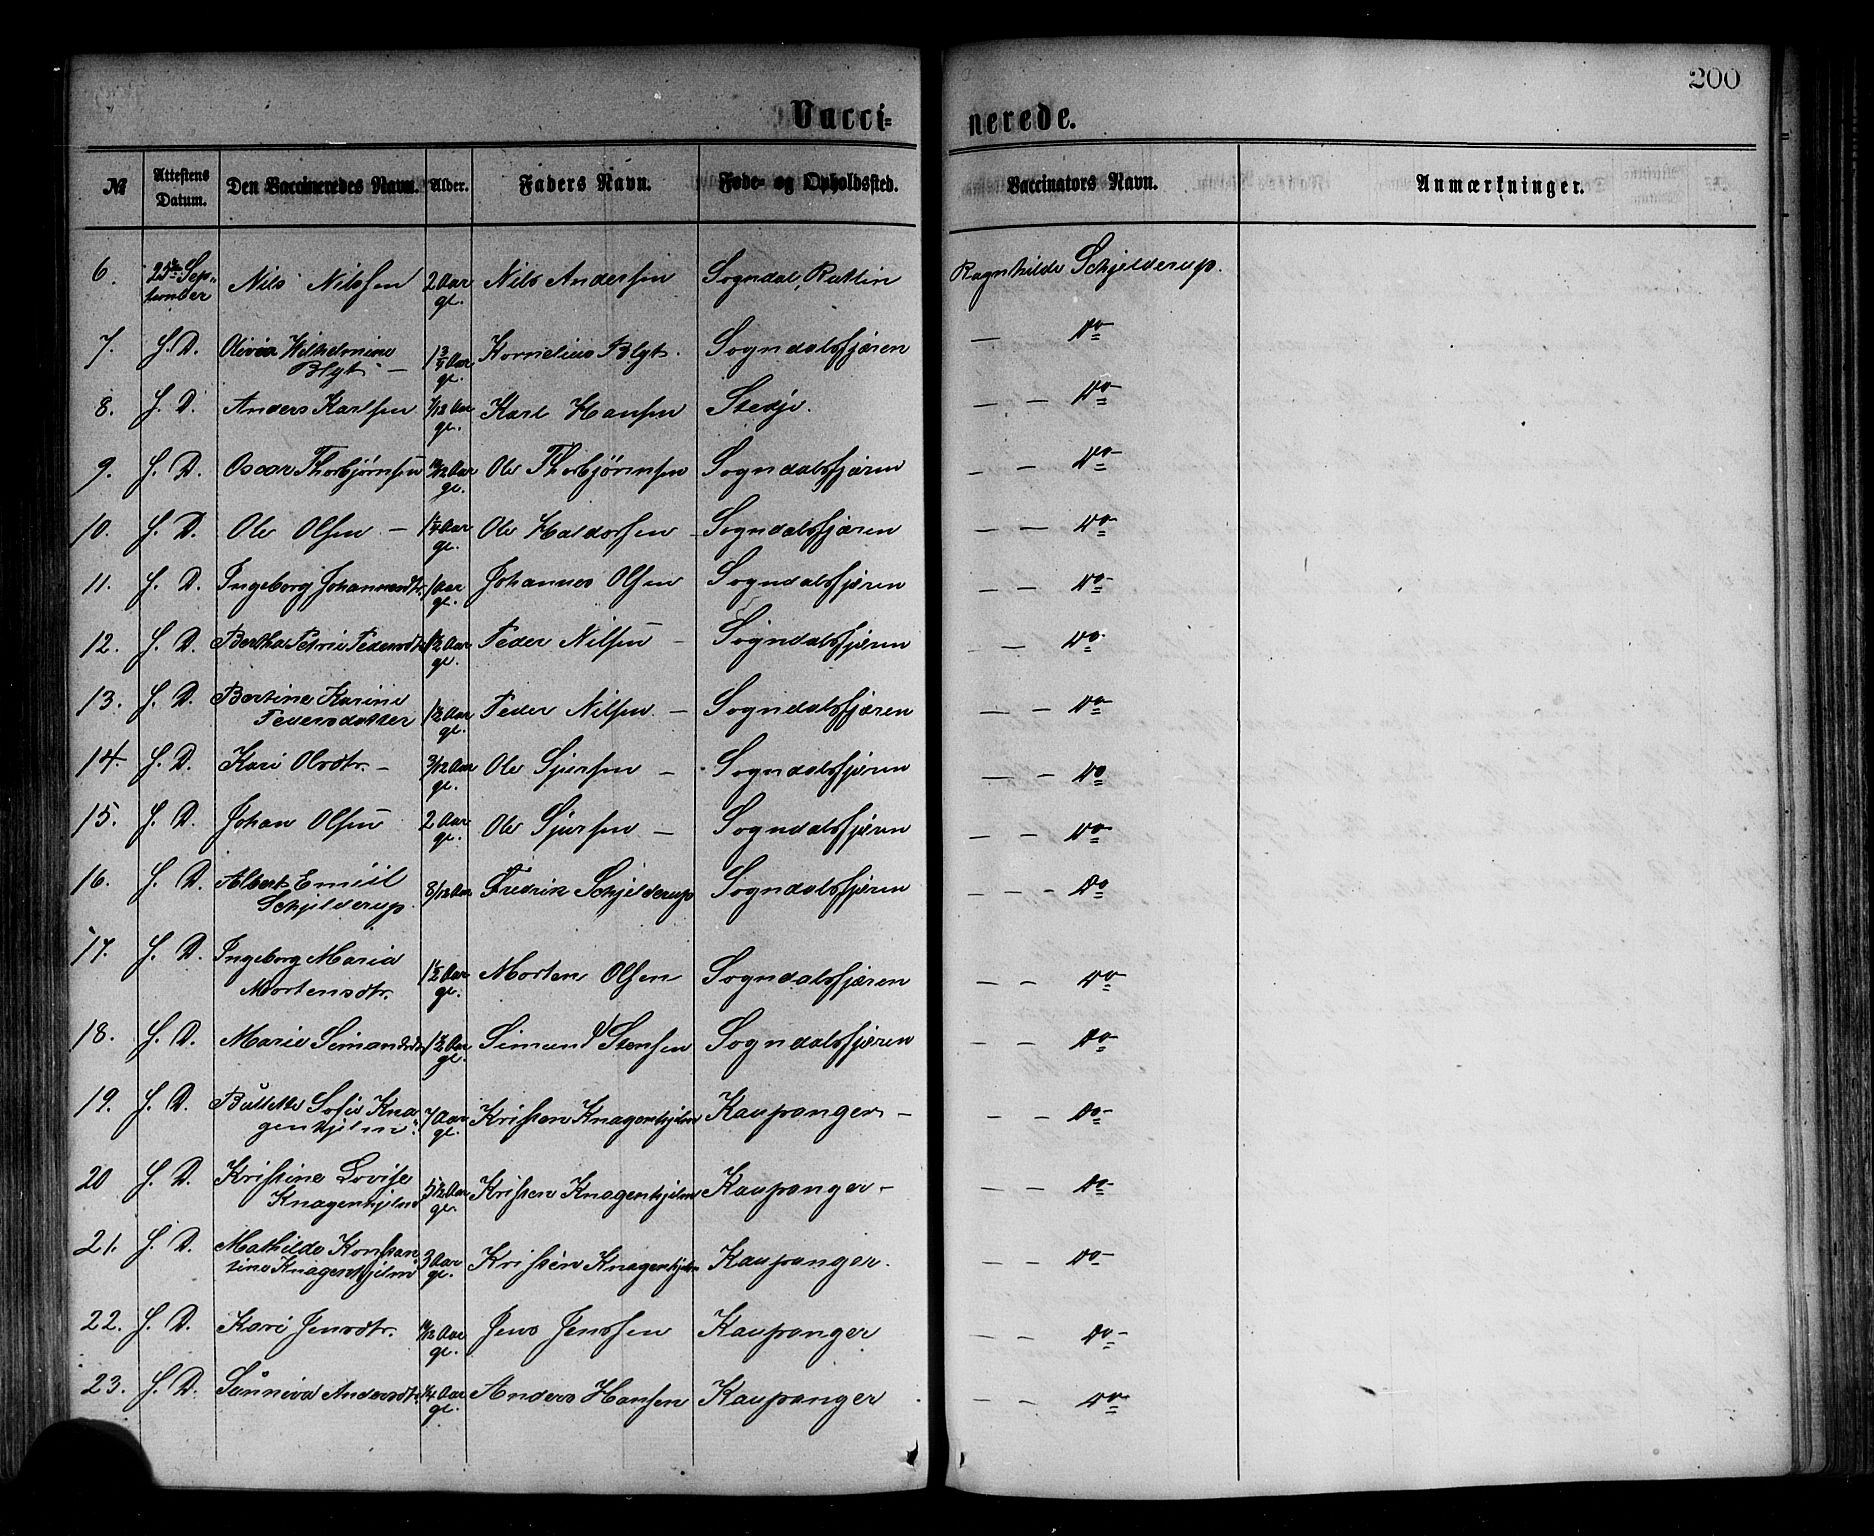 200
Vacci= nerede.
№ Attestens Datum. Den Vaccineredes Navn. Alder. Faders Navn. Føde- og Opholdssted. Vaccinators Navn. Anmærkninger.
6. 25de Sep"tember Nils Nilssen 2 Aar gl. Nils Anderssen Sogndal, Ragnhilde Schjelderup.
7. S. D. Olivia Wilhelmine Blyt — 1 3/4 Aar gl. Kornelius Blyt. Sogndalsfjæren — Do
8. S. D. Anders Karlsen 7/12 Aar gl. Karl Hansen Stedje. — — Do
9. S. D. Oscar Thorbjørnsen Aar gl. Ole Thorbjørnsen Sogndalsfjæren — — Do
10. S. D. Ole Olsen — 1 1/4 Aar gl. Ole Haldorsen — Sogndalsfjæren — — Do
11. S. D. Ingeborg Johannesdtr. 1 Aar gl. Johannes Olsen Sogndalsfjæren — — Do
12. S. D. Bertha Petrie Pedersdtr. 1 1/2 Aar gl. Peder Nilsen — Sogndalsfjæren — — Do
13. S. D. Bertine Karine Pedersdatter 1 1/2 Aar gl. Peder Nilsen. — Sogndalsfjæren — — Do
14. S. D. Kari Olsdtr. — 3/12 Aar gl. Ole Sjursen — Sogndalsfjæren — — Do
15. S. D. Johan Olsen 2 Aar gl. Ole Sjursen — Sogndalsfjæren — — Do
16. S. D. Albert Emiil Schjelderup. 8/12 Aar Fredrik Schjelderup Sogndalsfjæren — — — Do
17. S. D. Ingeborg Maria Mortensdtr. 1 1/2 Aar gl. Morten Olsen Sogndalsfjæren — — Do
18. S. D. Marie Simonsdtr. 1 1/2 Aar gl. Simen Stensen Sogndalsfjæren — — Do
19. S. D. Sofie Knagenhjelm. 7 Aar gl. Kristen Knagenhjelm Kaupanger — — — Do
20 S. D. Kristine Lovise Knagenhjelm 5 1/2 Aar gl. Kristen Knagenhjelm Kaupanger — — — Do
21. S. D. Mathilde Konstantine Knagenhjelm 3 Aar gl. Kristen Knagenhjelm Kaupanger. — — Do
22. S. D. Kari Jensdtr. Aar gl. Jens Jenssen Kaupanger — — Do
23. S. D. Sunniva Andersdtr. 1/4 Aar gl. Anders Hansen Kaupanger — — Do